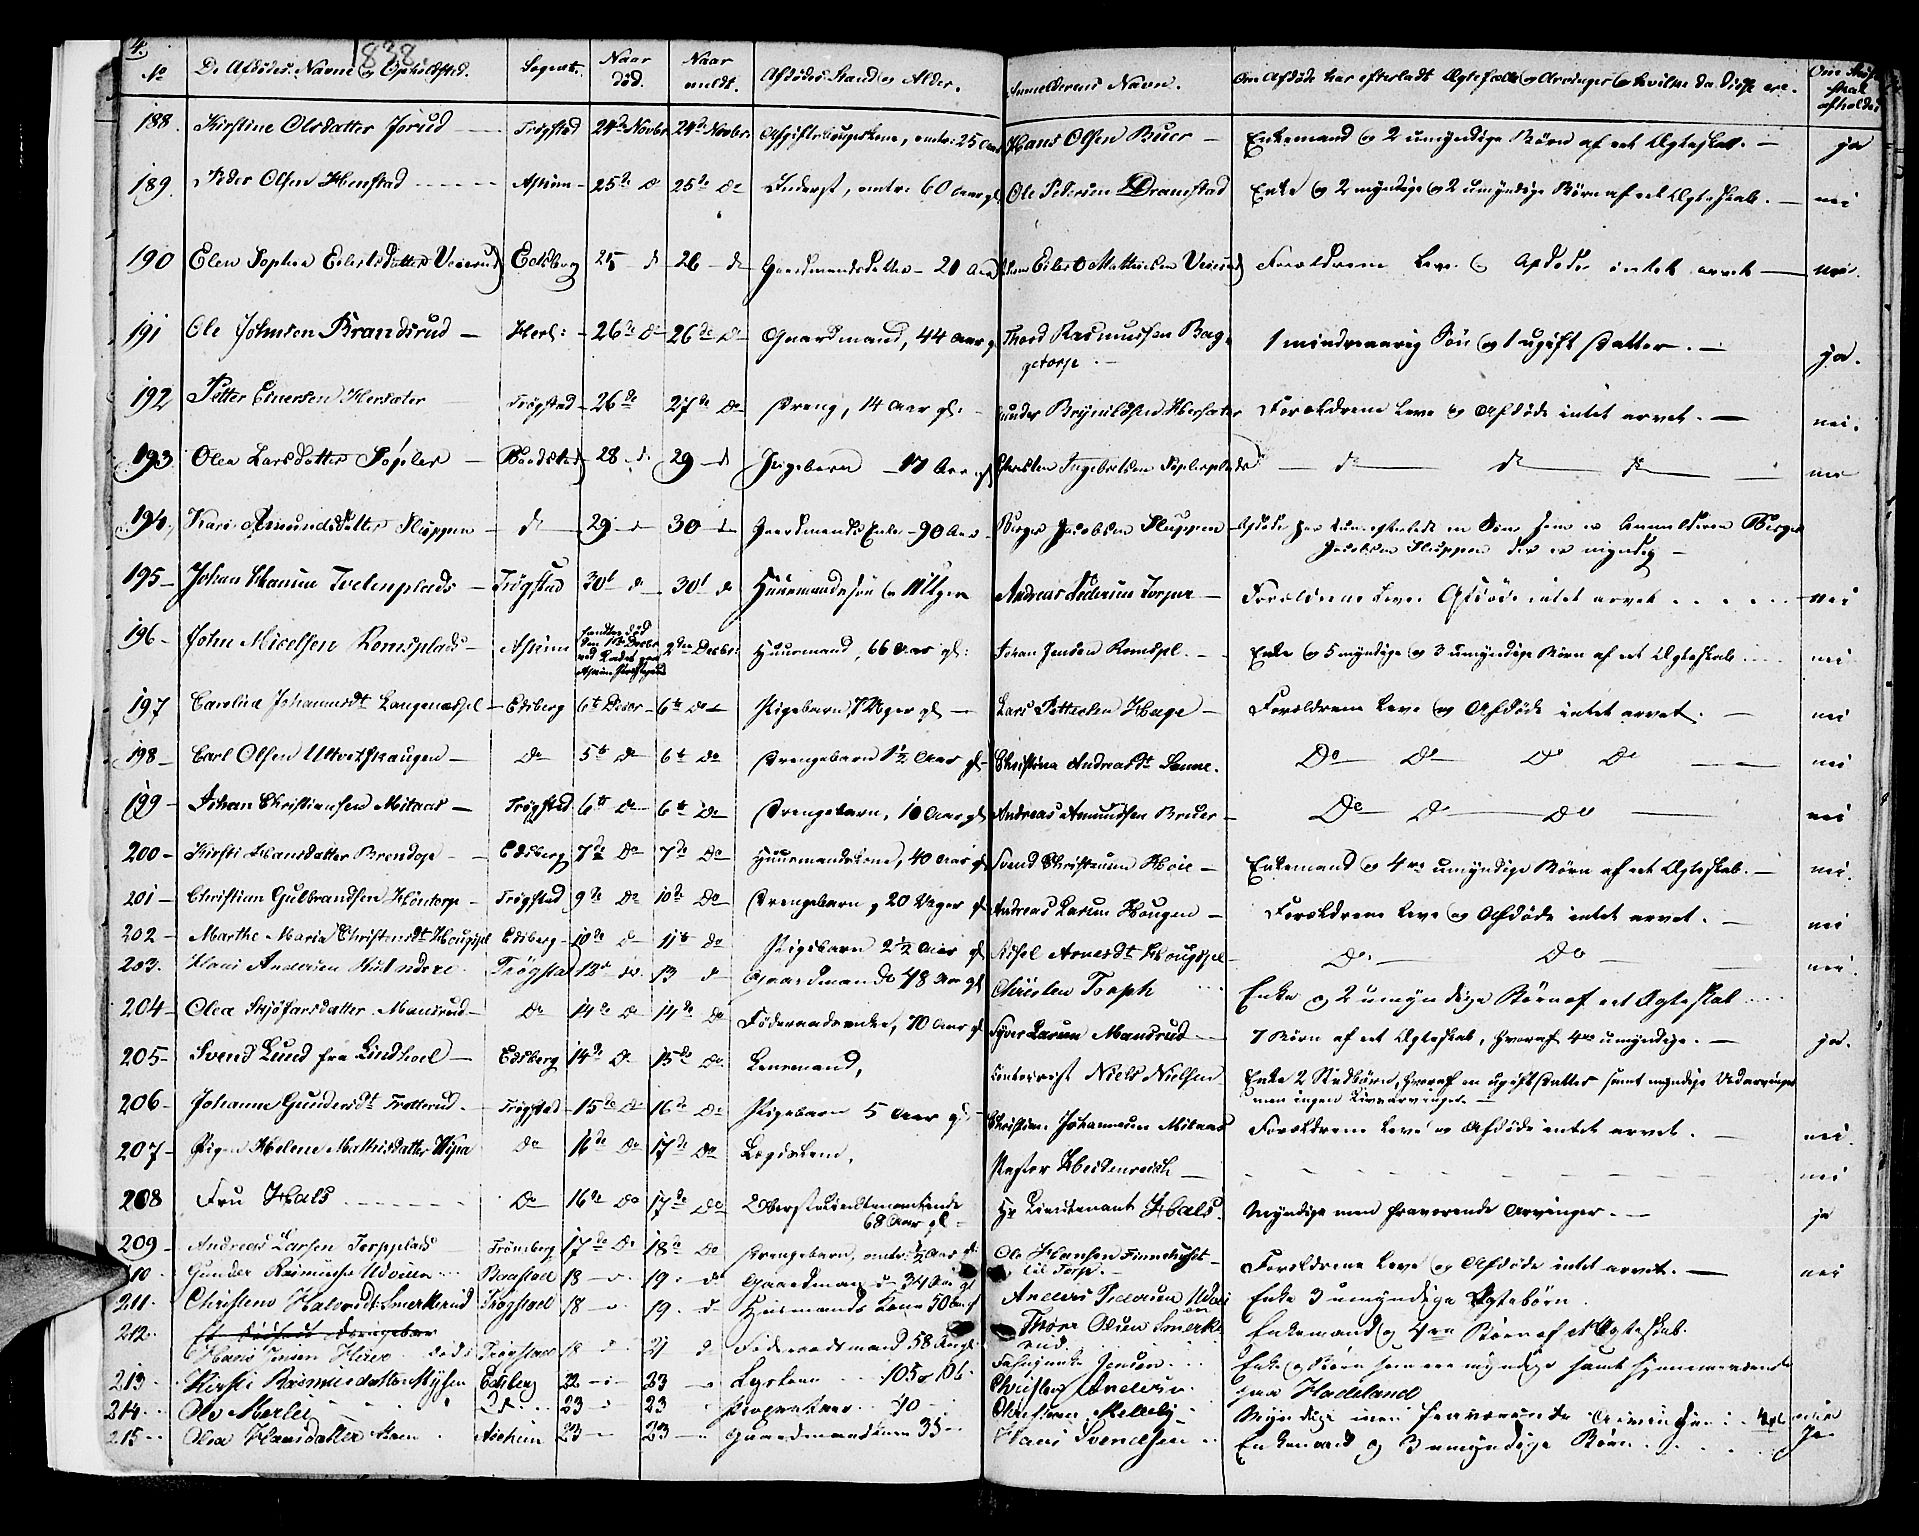 4.
1838.
No De Afdødes Navne og Opholdsted. Sogn. Naar død. Naar meldt. Afdødes Stand og Alder. Anmelderens Navn. Om Afdøde har efterladt Ægtefælle og Arvinger og hvilke da disse ere. Om Skifte skal afholdes
188. Kirstine Olsdatter Jorud Trøgstad 24de Novbr 24de Novbr 25 Aar Hans Olsen Buer Enkemand og 2 umyndige Børn af eet Ægteskab. ja
189. Peder Olsen Henstad Askim 25de Do 25de Do Inderst, omtr: 60 Aar gl. Ole Pedersen Dramstad Enke og 2 myndige og 2 umyndige Børn af eet Ægteskab. nei
190 Elen Sophia Eilertsdatter Veierud Edsberg 25 d 26 d Gaardmandsdatter 21 Aar Eilert Mathiesen Veierud Forældrene Leve og Afdøde intet arvet nei.
191 Ole Johnsen Brandsrud Herl: 26de Do 26de Do Gaardmand, 44 Aar g Thord Rasmussen Bag-
getorp. 1 mindreaarig Søn og 1 ugift Datter. ja.
192 Petter Einersen Hersæter Trøgstad 26de 27de Do Dreng, 14 Aar gl: Gunder Brynildsen Hersæter Forældrene Leve og Afdøde intet arvet. nei.
193. Olea Larsdatter Søpler Baadstad 28 d 29 d Pigebarn 17 Aar gl Christen Ingebretsen Søplerplads d d d nei
194. Kari Amundsdatter Sluppen d 29 d 30 d Gaardmands Enke 90 Aar Birger Jacobsen Sluppen Afdøde har kun efterladt en Søn som er Anmelderen Birger
Jacobsen Sluppen der er myndig
195 Johan Hansen Tvetenplads Trøgstad 30t d 30t d Huusmandssøn 11 Uger Andreas Pedersen Torper Forældrene Leve Afdøde intet arvet nei
196 John Micelsen Romsplads Askim funden død den 1de Decbr 2den Decbr: Huusmand, 66 Aar gl: Johan Jensen Romspl. Enke og 5 myndige og 3 umyndige Børn af eet Ægteskab nei
197 Caroline Johannesdt Langenæspl Edsberg 6te Decbr 6te Do Pigebarn 7 Uger gl Lars Pettersen Hage Forældrene Leve og Afdøde intet arvet. nei
198 Carl Olsen Ultvetskaugen Do 5te Do 6te Do Drengebarn 1½ Aar gl Christine Andreasdt Sanne. Do Do Do Do nei
199 Johan Christiansen Milaas Trøgstad 6te Do 6te Do Drengebarn, 10 Aar gl Andreas Amundsen Bruer Do Do Do nei
200 Kirsti Hansdatter Brendop Edsberg 7de Do 7de Do Huusmandskone, 40 Aar gl Svend Christensen Høie Enkemand og 4re umyndige Børn af eet Ægteskab. nei.
201 Christian Gulbrandsen Hontorp Trøgstad 9de Do 10de Do Drengebarn 20 Uger gl Andreas Larsen Hougen Forældrene Leve og Afdøde intet arvet. nei
202 Marthe Maria Christensdt Hougspl Edsberg 10de Do 11te Do Pigebarn 2½ Aar gl Assel Arnesdt Hougspl Do. Do nei.
203. Hans Andersen Trøgstad 12 do 13 d Gaardmand 48 Aar gl Christen Torph Enke og 2 umyndige Børn af eet Ægteskab
204 Olea Skjøfarsdatter Mansrud Do 14de Do 14de Do Føderaadsenke, 70 Aar gl Syver Larsen Mansrud 7 Børn af eet Ægteskab, hvoraf 4re umyndige. ja.
205 Svend Lund fra Lindhoel Edsberg 14de Do 15de Do Lensmand, Niels Nielsen Enke 2 Stedbørn, hvoraf en ugift Datter samt myndige Udarvinger
men ingen Livsarvinger.
206 Johanne Gundersdt Trøtterud. Trøgstad 15de Do 16de Do Pigebarn 5 Aar gl. Christian Johannesen Milaas Forældrene Leve og Afdøde intet arvet. nei.
207 Pigen Helene Mathisdatter Do 16de Do 17de Do Lægdslem, Pastor Heidenreich nei
208 Fru Hals Do 16de Do 17de Do Oberstlieutenantenke
68 Aar gl Hr Lieutenant Hals. Myndige men fraværende Arvinger. ja
209 Andreas Larsen Torpplads Trømborg 17de Do 18de Do Drengebarn, omtr: ½ Aar gl. Ole Hansen Finnehuset
til Torp. Forældrene Leve og Afdøde intet arvet. nei
210 Gunder Baastad 18 19 do Gaardmand 34 Aar gl Anders Pedersen Enke 3 umyndige Ægtebørn.
211 Christens Halvordsdt Smerkerud Trøgstad 18 19. d Huusmands Kone 50 Aar Thore Olsen Smerke-
rud. Enkemand og 4re Børn af et Ægteskab.
212. Hans Jensen Trøgstad 18 21 d Føderaadsmand 58 Aar gl Jensen Enke og Børn som ere myndige samt
paa Hadeland
213 Kirsti Rasmusdatter Mysen Edsberg 22 23 105 Christen Andersen
214 Ole 23 23 70 Christian Melleby Myndige men fraværende nei
215 Olea Hansdatter Askim 23 23 Gaardmandskone 35 Hans Svendsen Enkemand og 3 umyndige Børn. Ja